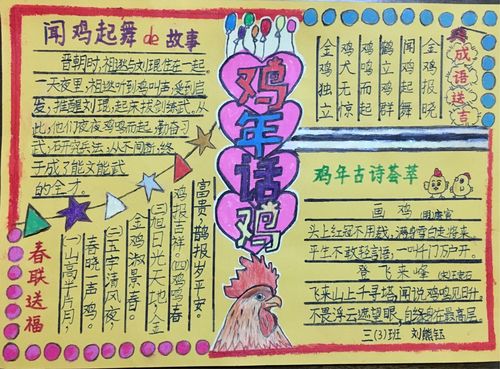 闻鸡起舞de故事
晋朝时,祖逖与刘琨住在一起。
一天夜里,祖逖听到鸡叫声,受到启
发,推醒刘琨,起床拔剑练武。从
此,他们夜夜鸡鸣而起,勤奋习
武,研究兵法,从不间断,终
于成了能文能武
的全才。
春联送福
(一)山高半片月,
春晓一声鸡。
(二)五字清风夜,
金鸡淑景春。
(三)旭日光天地,金
鸡报吉祥。(四)鸡鸣春
富贵,鹊报岁平安。
鸡年话鸡
成语送吉
金鸡报晓
闻鸡起舞
鹤立鸡群
鸡鸣而起
鸡犬无惊
金鸡独立
鸡年古诗荟萃
画鸡(明唐寅)
头上红冠不用裁,满身雪白走将来。
平生不敢轻言语,一叫千门万户开。
登飞来峰(宋王安石)
飞来山上千寻塔,闻说鸡鸣见日升。
不畏浮云遮望眼,自缘身在最高层。
三(3)班 刘熊钰